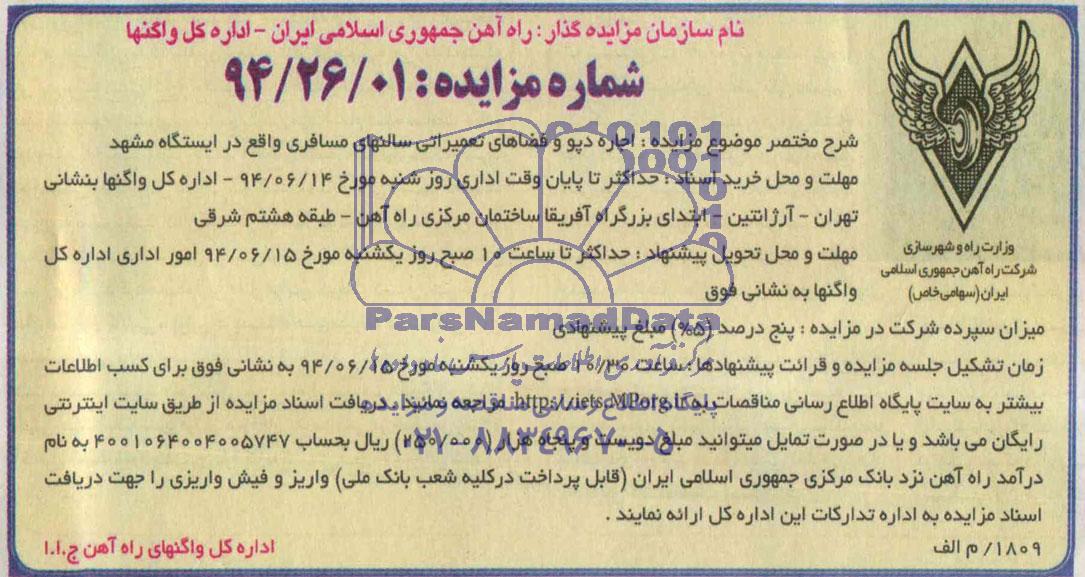 نام سازمان مزایده گذار : راه آهن جمهوری اسلامی ایران - اداره کل واگنها
شماره مزایده : ۹۴/۲۶/۰۱
شرح مختصر موضوع مزایده : اجاره دپو و فضاهای تعمیراتی سالنهای مسافری واقع در ایستگاه مشهد
مهلت و محل خرید اسناد : حداکثر تا پایان وقت اداری روز شنبه مورخ ۹۴/۰۶/۱۴ - اداره کل واگنها بنشانی
تهران - آرژانتین - ابتدای بزرگراه آفریقا ساختمان مرکزی راه آهن - طبقه هشتم شرقی
مهلت و محل تحویل پیشنهاد : حداکثر تا ساعت ۱۰ صبح روز یکشنبه مورخ ۹۴/۰۶/۱۵ امور اداری اداره کل
واگنها به نشانی فوق
وزارت راه و شهرسازی
شرکت راه آهن جمهوری اسلامی
ایران (سهامی خاص)
میزان سپرده شرکت در مزایده : پنج درصد (۵%) مبلغ پیشنهادی
زمان تشکیل جلسه مزایده و قرائت پیشنهادها : ساعت ۱۰/۳۰ صبح روز یکشنبه مورخ ۹۴/۰۶/۱۵ به نشانی فوق برای کسب اطلاعات
بیشتر به سایت پایگاه اطلاع رسانی مناقصات http://iets.MPorg.ir مراجعه نمایند. دریافت اسناد مزایده از طریق سایت اینترنتی
رایگان می باشد و یا در صورت تمایل میتوانید مبلغ دویست و پنجاه هزار (۲۵۰/۰۰۰) ریال بحساب ۴۰۰۱۰۶۴۰۰۴۰۰۵۷۴۷ به نام
درآمد راه آهن نزد بانک مرکزی جمهوری اسلامی ایران (قابل پرداخت درکلیه شعب بانک ملی) واریز و فیش واریزی را جهت دریافت
اسناد مزایده به اداره تدارکات این اداره کل ارائه نمایند .
۱۸۰۹/ م الف
اداره کل واگنهای راه آهن ج.ا.ا
ParsNamadData
پایگاه اطلاع رسانی مناقصه و مزایده
۰۲۱-۸۸۳۴۹۶۷۰-۵